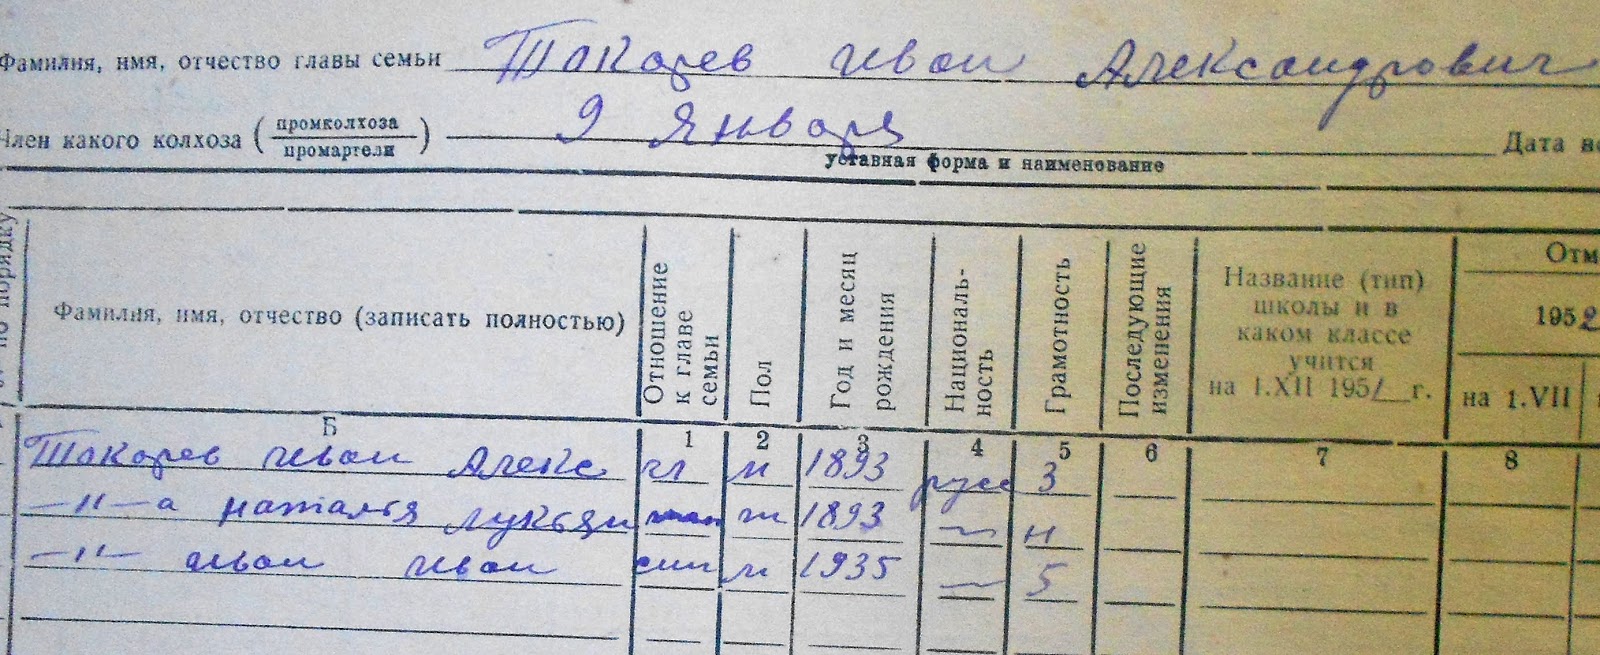 Фамилия, имя, отчество главы семьи Токарев Иван Александрович
Член какого колхоза (промколхоза / промартели) 9 Января Дата вс
уставная форма и наименование
по порядку
Фамилия, имя, отчество (записать полностью)
Отношение к главе семьи
Пол
Год и месяц рождения
Националь-
ность
Грамотность
Последующие изменения
Название (тип)
школы и в
каком классе
учится
на 1.XII 1951 г.
Отм
1952
на 1.VII
Б 1 2 3 4 5 6 7 8
Токарев Иван Алекс гл м 1893 русс 3
—"—а Наталья Лукьян ж 1893 — н
—"— Иван Иван сын м 1935 — 5